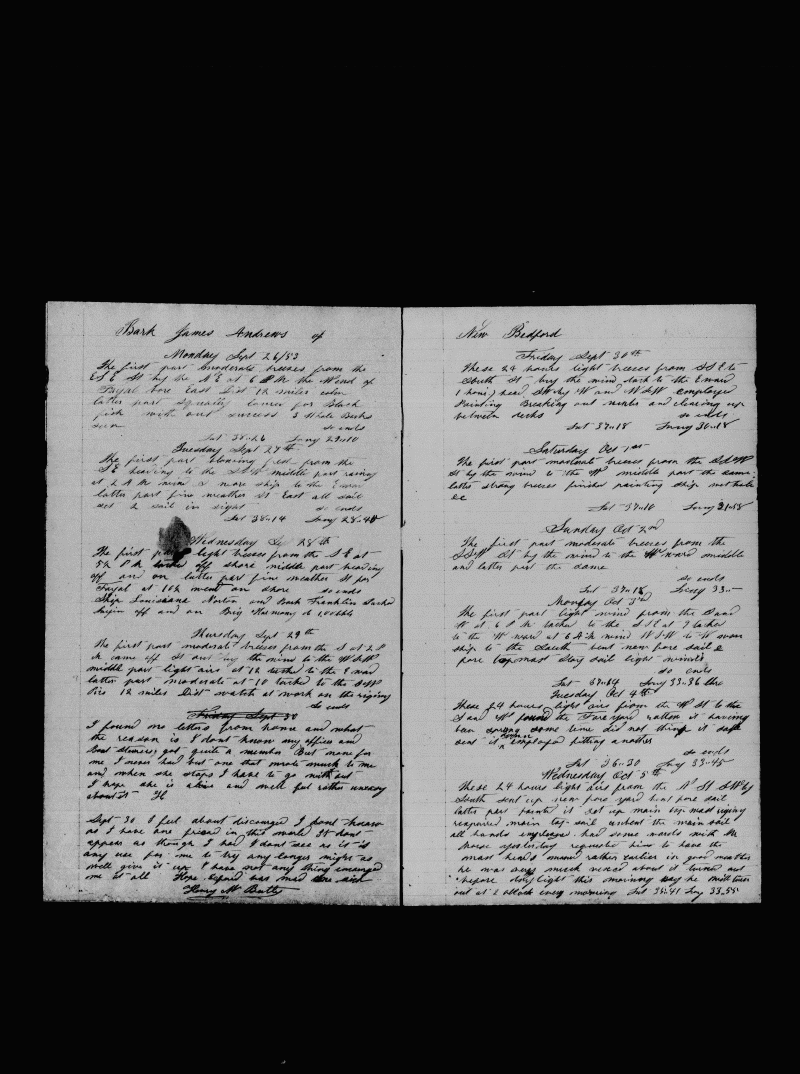 Bark James Andrews of
Monday Sept 26/53
The first part moderate breezes from the
S E St by the N E at 6 P M the West of
Fayal bore East Dist 12 miles
latter part squally for Black
fish with out success 3 Whale Barks
seen so ends
Lat 38.26 Long 29.10
Tuesday Sept 27th
The first part blowing fresh from the
S E heading to the S S W middle part rainy
at 2 A M ship to the E ward
latter part fine weather St East all sail
set 2 sail in sight so ends
Lat 38.14 Long 28.48
Wednesday 28th
The first part light breezes from the S E at
5 P M off shore middle part heading
off and on latter part fine weather St for
Fayal at 10 went on shore so ends
Ship Louisiana Norton and Bark Franklin
laying off and on Brig Harmony do 100 bbls
Thursday Sept 29th
The first part moderate breezes from the S at 2 P
M came off St the wind to the W S W
middle part light airs at 12 tacked to the E ward
latter part moderate at 10 tacked to the S W
Pico 12 miles Dist watch at work on the rigging
So ends
Friday Sept 30
I found no letters from home and what
the reason is I dont know my officers and
boat steerers got quite a number But none for
me I never had but one that wrote much to me
and when she stops I have to go without
I hope she is alive and well feel rather uneasy
about it H
Sept 30 I feel about discouraged I dont know
as I have one friend in this world It dont
appear as though I had I dont see as it is
any use for me to try any longer might as
well give it up I have not any thing to encourage
me at all
Henry M Butts
New Bedford
Friday Sept 30th
These 24 hours light breezes from S S E to
South St by the wind tack to the E ward
1 hour head St by W and W S W employed
Painting Breaking out and clearing up
between decks so ends
Lat 37.18 Long 30.18
Saturday Oct 1st
The first part moderate breezes from the S S W
St by the wind to the W middle part the same
latter strong breezes finished painting ship
Lat 37.10 Long 31.58
Sunday Oct 2nd
The first part moderate breezes from the
S S W St by the wind to the W ward middle
and latter part the same
so ends
Lat 37.18 Long 33
Monday Oct 3rd
The first part light wind from the S and
W at 6 P M tacked to the S E at 7 tacked
to the W ward at 6 A M wind W S W to W wore
ship to the South bent new fore sail &
fore top mast stay sail light winds
so ends
Lat 37.14 Long 33.36
Tuesday Oct 4th
These 24 hours light airs from the W St to the
S and W found the Fore yard rotten it having
been sprung some time did not think it safe
sent it employed fitting another
so ends
Lat 36.30 Long 33.45
Wednesday Oct 5th
These 24 hours light airs from the N St S W by
South sent up new fore yard bent fore sail
latter part painted it set up main top mast rigging
repaired main top sail unbent the main sail
all hands employed had some words with Mr
Morse yesterday requested him to have the
mast heads manned rather earlier in good weather
he was very much vexed about it turned out
before daylight this morning says he will turn
out at 2 oclock every morning Lat 35.41 Long 33.55